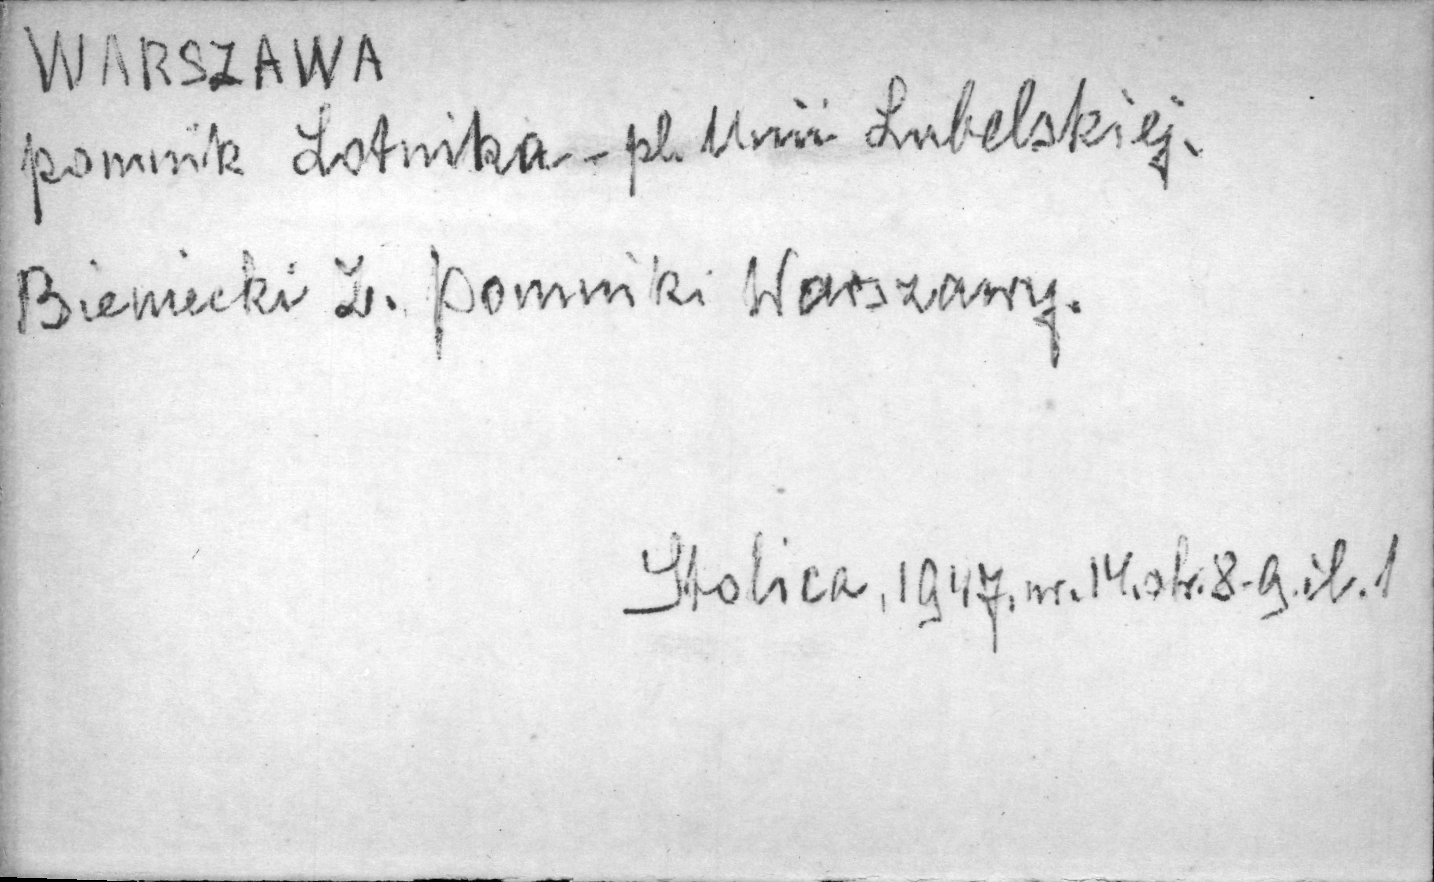 WARSZAWA
pomnik Lotnika - pl. Unii Lubelskiej.
Bieniecki Z. Pomniki Warszawy.
Stolica, 1947. nr. 14. str. 8-9. il. 1